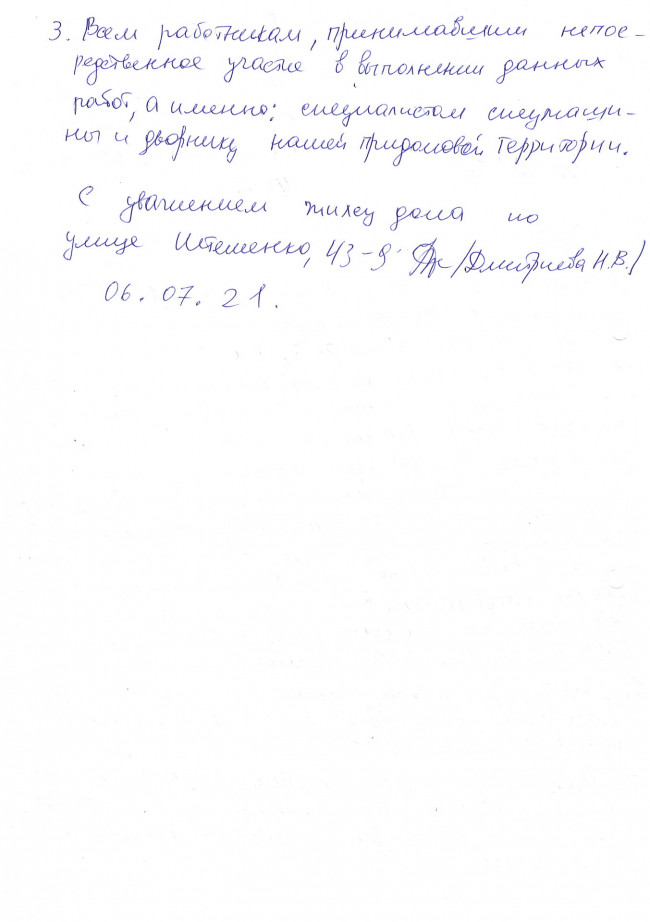 3. Всем работникам, принимавшим непос-
редственное участие в выполнении данных
работ, а именно: специалистам спецмаши-
ны и дворнику нашей придомовой территории.
С уважением жилец дома по
улице 43-9 /Дмитриева Н.В./
06.07.21.